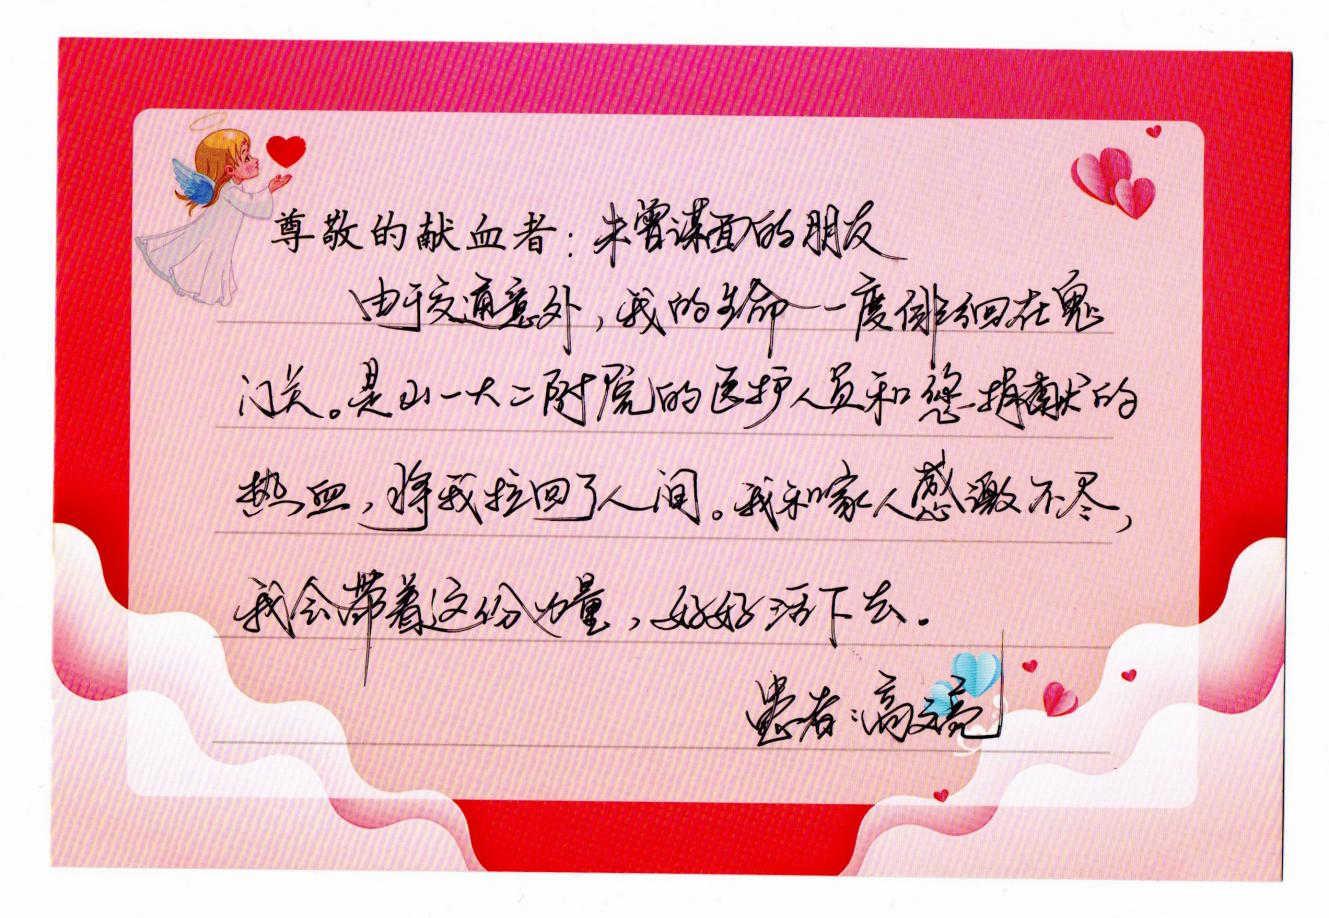 尊敬的献血者：未曾谋面的朋友
由于交通意外，我的生命一度徘徊在鬼
门关。是山一大二附院的医护人员和您捐献的
热血，将我拉回了人间。我和家人感激不尽，
我会带着这份力量，好好活下去。
患者：高文亮